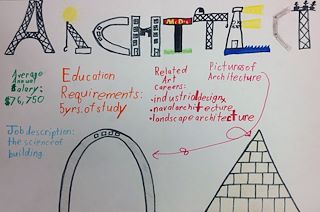 ARCHITECT
McD's
Average
Annual
Salary:
$76,750
Education
Requirements:
5yrs. of study
Related
Art
Careers:
•industrial design,
•naval architecture,
•landscape architecture
Pictures of
Architecture
Job description:
the science of
building.